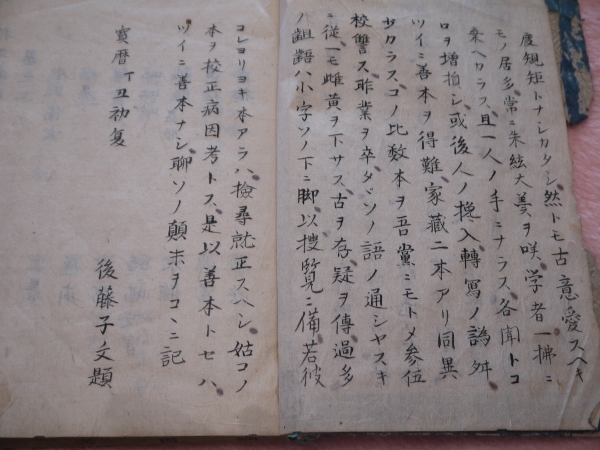 度規矩トナシカタシ然トモ古意愛スヘキ
モノ居多常ニ朱絃大羮ヲ咲学者一拂ニ
棄ヘカラス且一人ノ手ニナラス各聞トコ
ロヲ増拍シ或後人ノ攙入轉寫ノ譌舛
ツイニ善本ヲ得難家藏二本アリ同異
少カラスコノ比数本ヲ吾黨ニモトメ参伍
校讐ス昨業ヲ卒タヾソノ語ノ通シヤスキ
ニ従一モ雌黄ヲ下サス古ヲ存疑ヲ傳過多
ノ齟齬ハ小字ソノ下ニ脚以捜覧ニ備若彼
コレヨリヨキ本アラハ檢尋就正スヘシ姑コノ
本ヲ校正病因考トス是以善本トセハ
ツイニ善本ナシ聊ソノ顛末ヲコヽニ記
寳暦丁丑初夏
後藤子文題